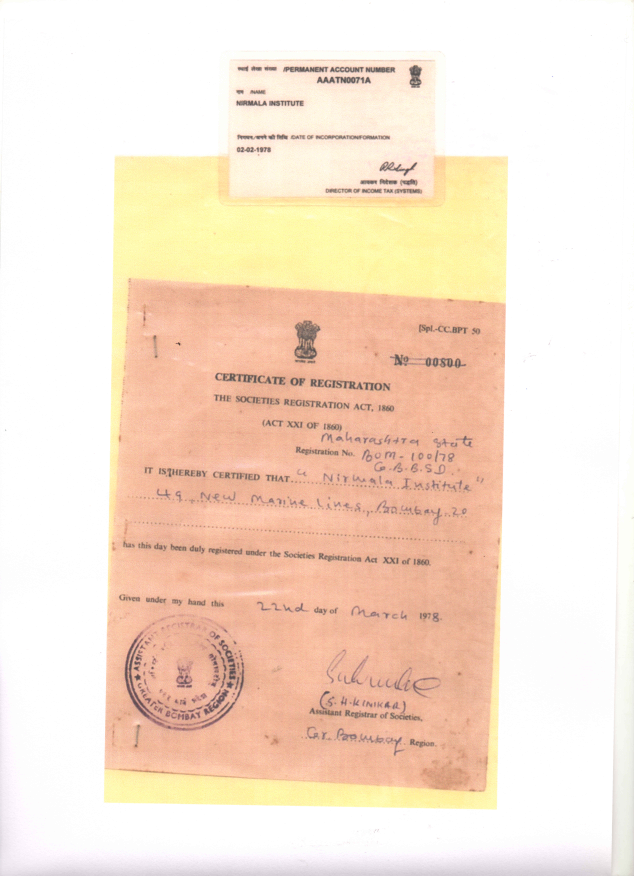 स्थाई लेखा संख्या /PERMANENT ACCOUNT NUMBER
AAATN0071A
नाम /NAME
NIRMALA INSTITUTE
निगमन/बनने की तिथि /DATE OF INCORPORATION/FORMATION
02-02-1978
आयकर निदेशक (पद्धति)
DIRECTOR OF INCOME TAX (SYSTEMS)
[Spl.-CC.BPT 50
No 00800
CERTIFICATE OF REGISTRATION
THE SOCIETIES REGISTRATION ACT, 1860
(ACT XXI OF 1860)
Maharashtra State
Registration No. BOM-100/78
G.B.B.S.D.
IT IS HEREBY CERTIFIED THAT " Nirmala Institute "
49, New Marine Lines, Bombay 20
has this day been duly registered under the Societies Registration Act XXI of 1860.
Given under my hand this 22nd day of March 1978.
ASSISTANT REGISTRAR OF SOCIETIES
GREATER BOMBAY REGION
(S. H. KINIKAR)
Assistant Registrar of Societies,
Gr. Bombay Region.